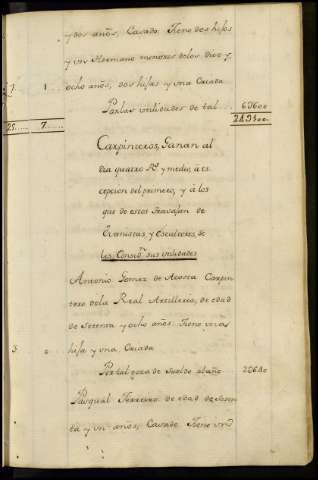 y dos años, Casado. Tiene dos hijos
y un Hermano menores de los diez y
7 1 ocho años, dos hijas y una Criada
Por las utilidades de tal 60600
25 7 24,31
Carpinteros, Ganan al
dia quatro Rs. y medio, à ex
cepcion del primero, y à los
que de estos travajan de
Evanistas, y Escultores, se
les Considn. sus utilidades
Antonio Gomez de Acosta Carpin
tero de la Real Artilleria, de edad
de Setenta y ocho años. Tiene una
3 0 hija y una Criada
Por tal goza de Sueldo al año 20680
Pasqual Ferreiro de edad de
ta y un años, Casado. Tiene un